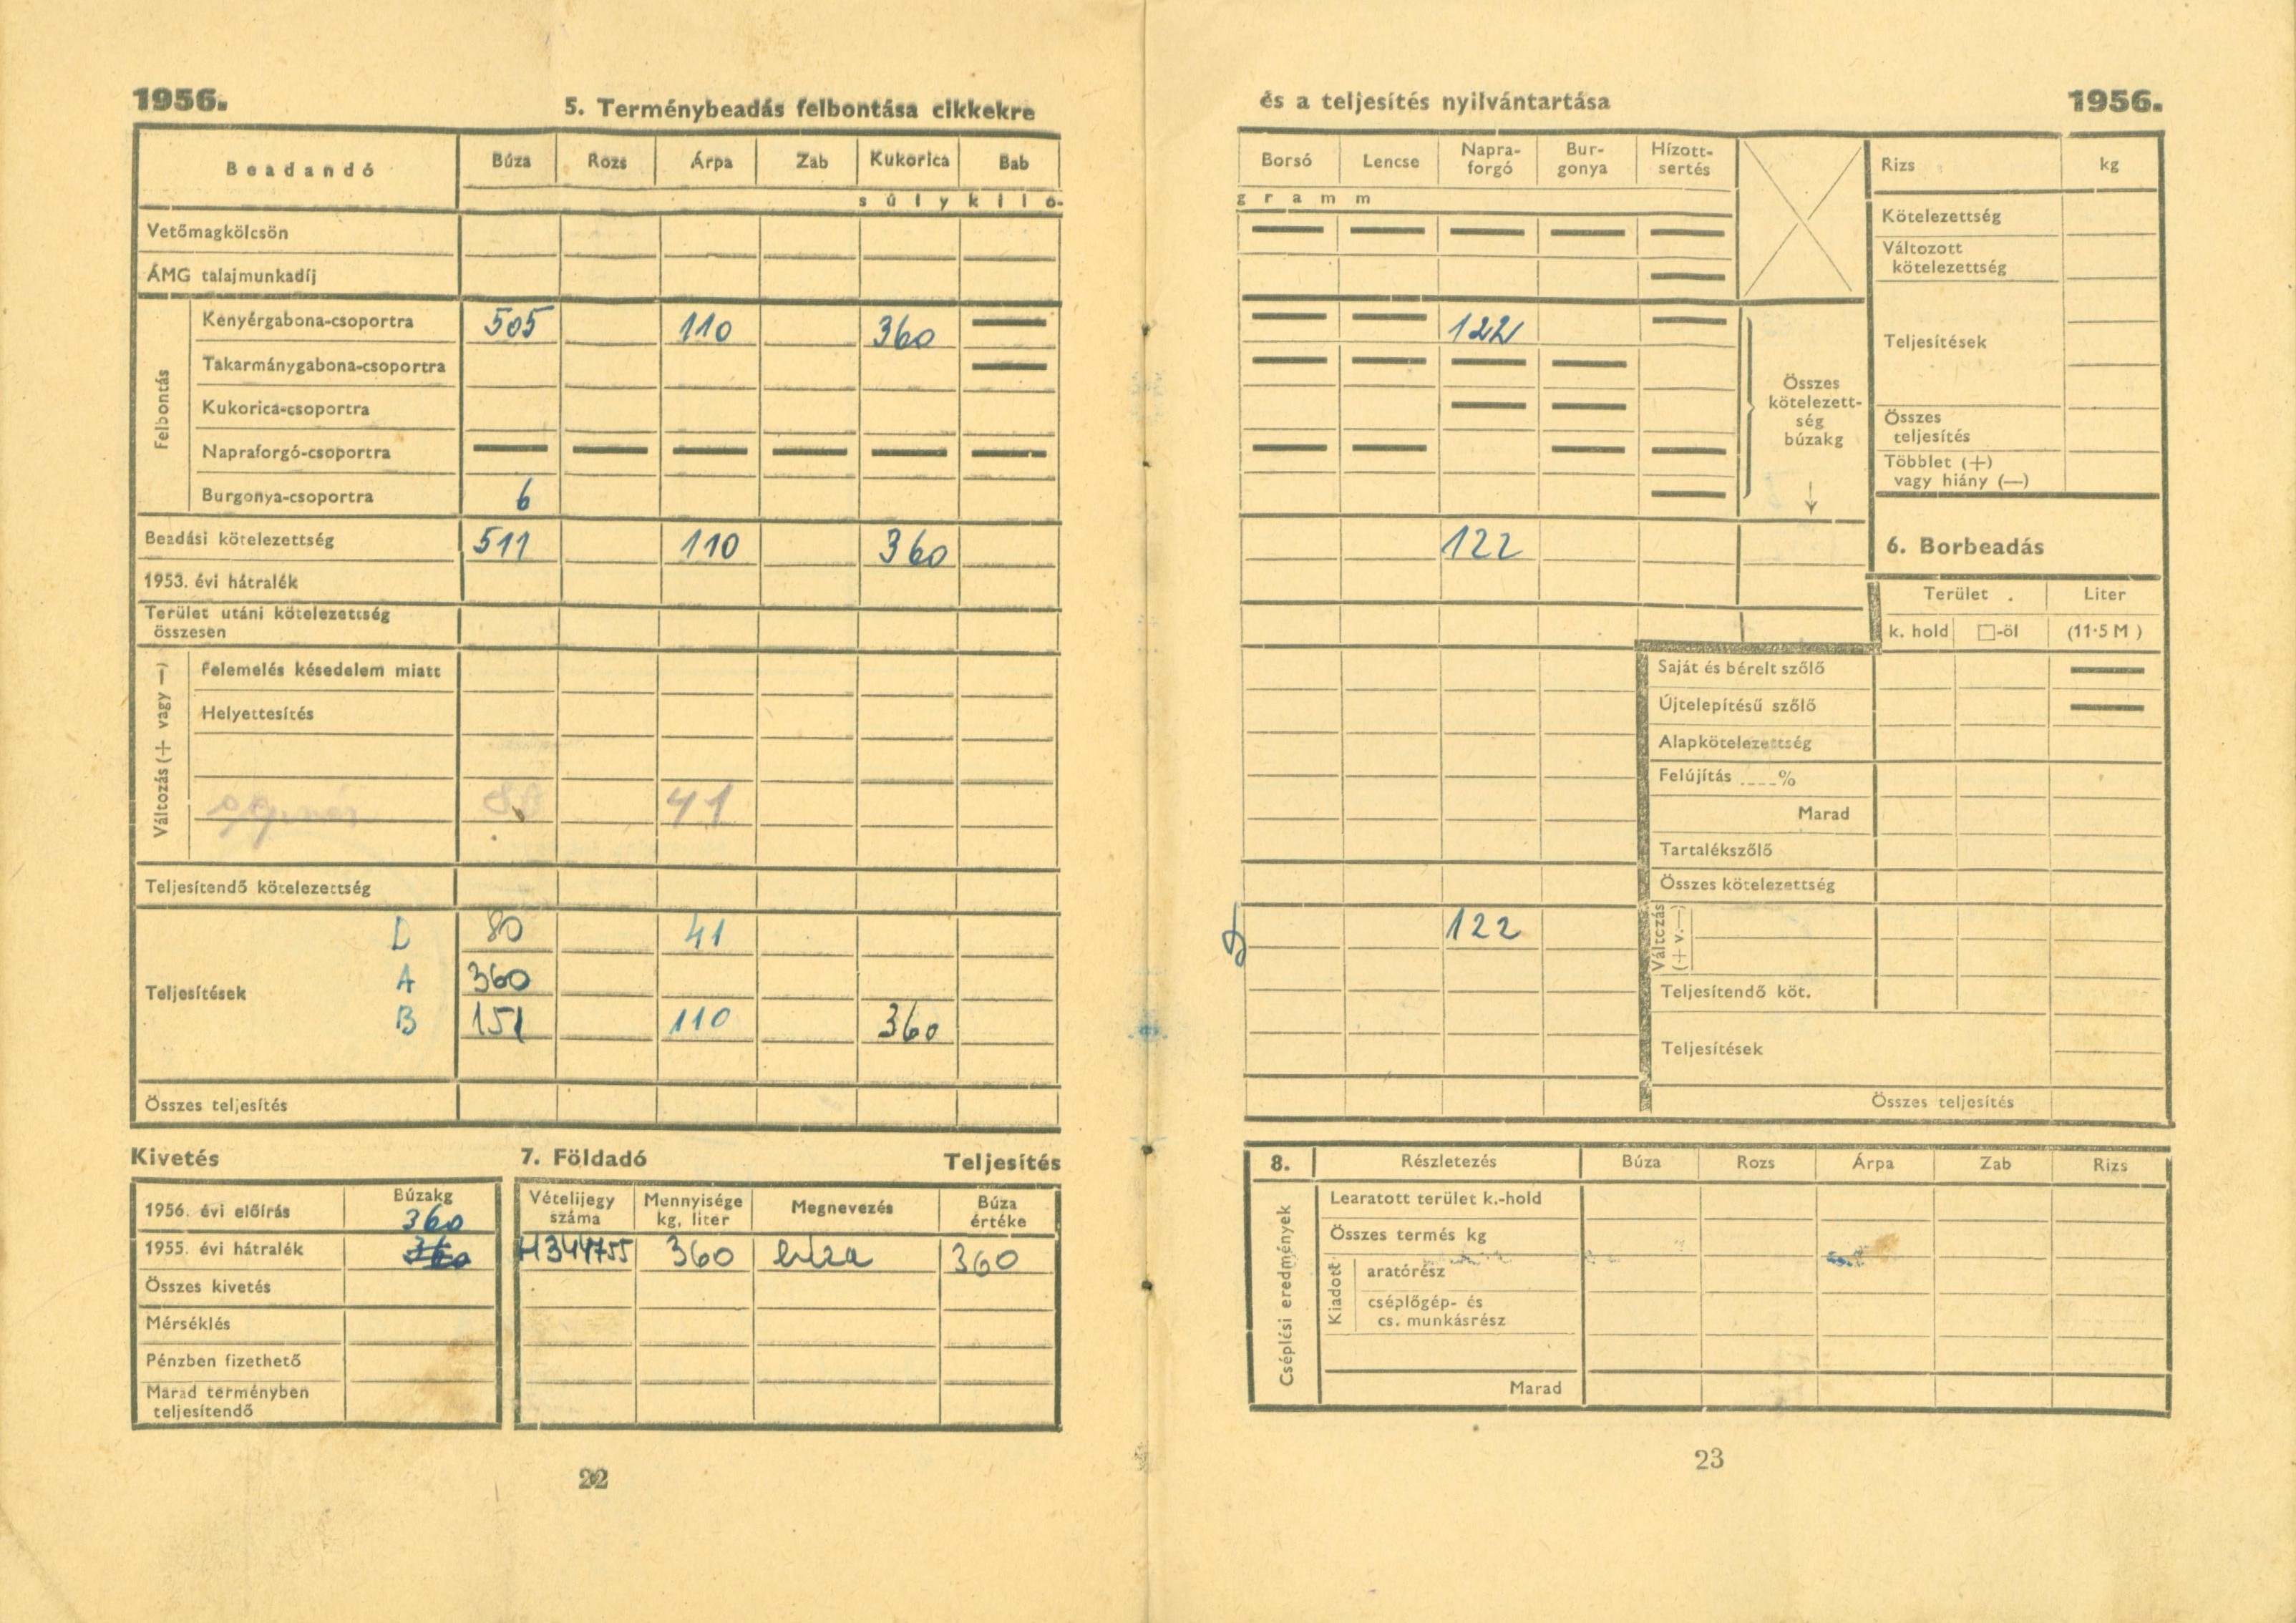 1956.
5. Terménybeadás felbontása cikkekre
Beadandó Búza Rozs Árpa Zab Kukorica Bab
súlykilo-
Vetőmagkölcsön
ÁMG talajmunkadíj
Felbontás
Kenyérgabona-csoportra 505 110 360
Takarmánygabona-csoportra
Kukorica-csoportra
Napraforgó-csoportra
Burgonya-csoportra 6
Beadási kötelezettség 511 110 360
1953. évi hátralék
Terület utáni kötelezettség
összesen
Változás (+ vagy —)
Felemelés késedelem miatt
Helyettesítés
80 41
Teljesítendő kötelezettség
Teljesítések
D 80 41
A 360
B 151 110 360
Összes teljesítés
Kivetés
Búzakg
1956. évi előírás 360
1955. évi hátralék 360
Összes kivetés
Mérséklés
Pénzben fizethető
Marad terményben
teljesítendő
7. Földadó Teljesítés
Vételijegy száma Mennyisége kg, liter Megnevezés Búza értéke
H344755 360 búza 360
22
és a teljesítés nyilvántartása
1956.
Borsó Lencse Napra-forgó Bur-gonya Hízott-sertés
gramm
122
Összes
kötelezett-
ség
búzakg
↓
122
122
Rizs kg
Kötelezettség
Változott
kötelezettség
Teljesítések
Összes
teljesítés
Többlet (+)
vagy hiány (—)
6. Borbeadás
Terület . Liter
k. hold □-öl (11·5 M )
Saját és bérelt szőlő
Újtelepítésű szőlő
Alapkötelezettség
Felújítás ....%
Marad
Tartalékszőlő
Összes kötelezettség
Változás
(+ v.—)
Teljesítendő köt.
Teljesítések
Összes teljesítés
8. Részletezés Búza Rozs Árpa Zab Rizs
Cséplési eredmények
Learatott terület k.-hold
Összes termés kg
Kiadott
aratórész
cséplőgép- és
cs. munkásrész
Marad
23